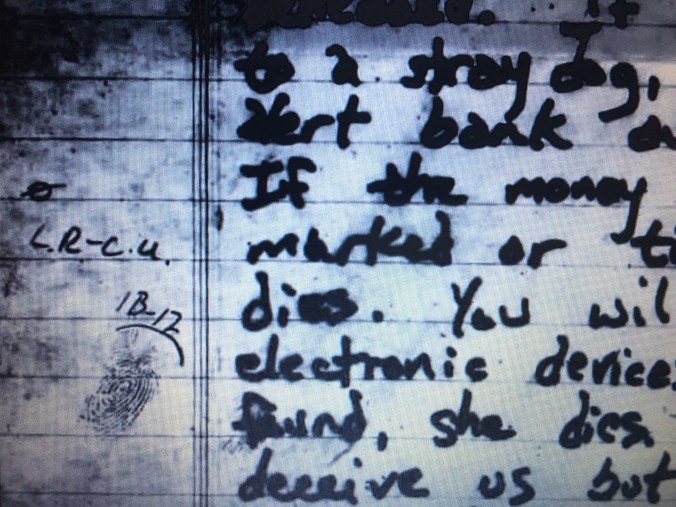 to a stray dog,
alert bank
If the money
marked or
dies. You wil
electronic device
found, she dies.
deceive us but
L.R-C.U.
1B-12